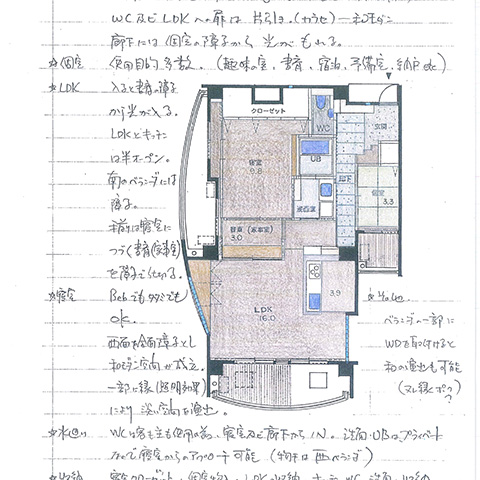 WC及びLDKへの扉は片引き。(カウセ)一和モダン
廊下には個室の障子から光がもれる。
☆個室 使用目的多数。(趣味の室、書斎、宿泊、予備室、納戸etc)
☆LDK 入ると書斎の障子
から光が入る。
LDKとキッチン
は半オープン。
南のベランダには
障子。
手前は寝室に
つづく書斎(家事室)
を障子で仕切る。
☆寝室 Bedでもタタミでも
OK.
西面を全面障子とし
和モダン空間が成立。
一部に縁(照明効果)
により淡い空間を演出。
クローゼット
寝室
9.8
WC
UB
洗面室
玄関
廊下
個室
3.3
書斎(家事室)
3.0
LDK
16.0
3.9
ベランダの一部に
WDを取つけると
和の演出も可能
(ヌレ縁ポク)
?
☆水回り WCは客も主も使用の為、寝室及び廊下からIN。洗面・UBは、プライベート
なので寝室からのアプローチ可能(物干は西ベランダ)
☆収納